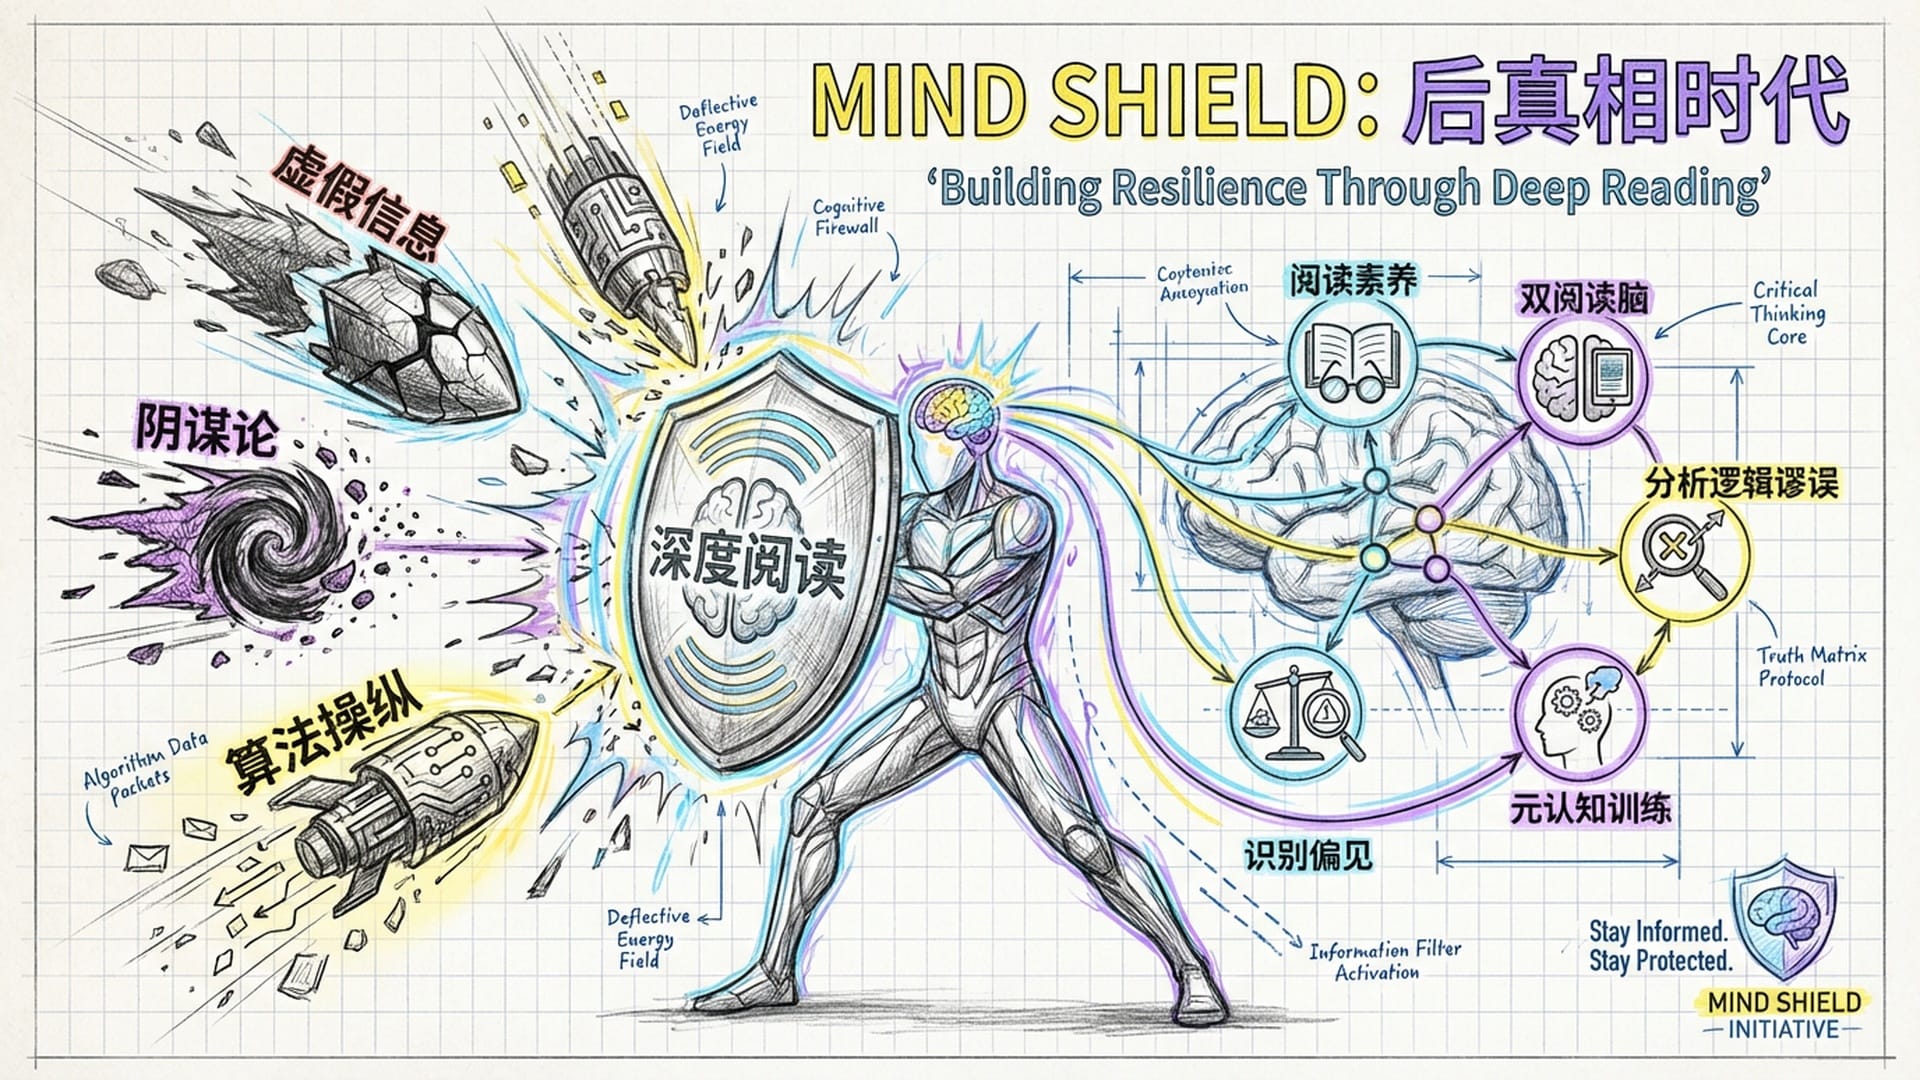 MIND SHIELD: 后真相时代
‘Building Resilience Through Deep Reading’
Deflective
Energy
Field
虚假信息
阴谋论
算法操纵
Algorithm Data
Packets
深度阅读
Deflective
Energy
Field
Firewall
阅读素养
双阅读脑
Critical
Thinking
Core
分析逻辑谬误
Truth Matrix
Protocol
元认知训练
识别偏见
Information Filter
Activation
Stay Informed.
Stay Protected.
MIND SHIELD
INITIATIVE